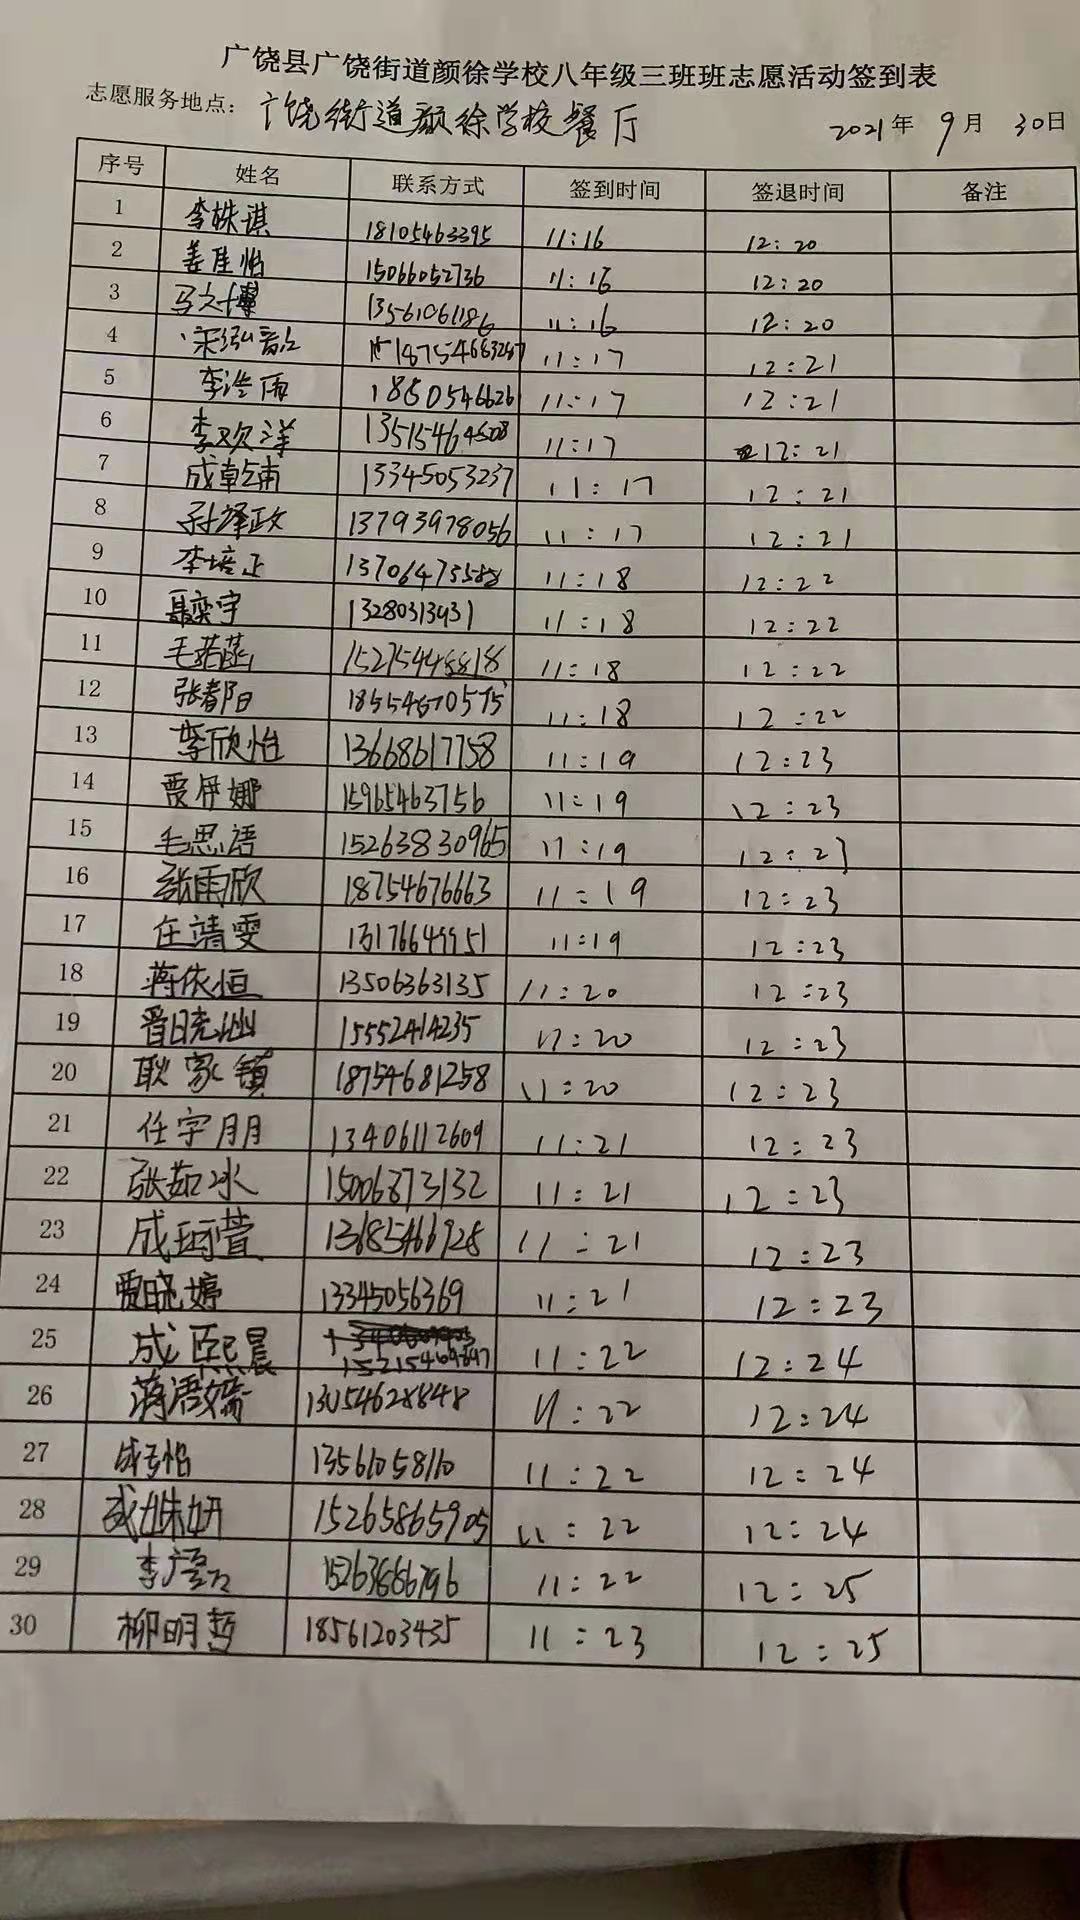 广饶县广饶街道颜徐学校八年级三班班志愿活动签到表
志愿服务地点：广饶街道颜徐学校餐厅 2021年 9月 30日
序号 姓名 联系方式 签到时间 签退时间 备注
1 李姝琪 18105463395 11:16 12:20
2 姜佳怡 15066052736 11:16 12:20
3 马文博 13561061186 11:16 12:20
4 18754663257 11:17 12:21
5 李浩雨 1850546626 11:17 12:21
6 李欢洋 13515464508 11:17 12:21
7 成乾甫 13345053237 11:17 12:21
8 孙泽政 13793978056 11:17 12:21
9 李培正 13706473588 11:18 12:22
10 聂奕宇 13280313431 11:18 12:22
11 毛若菡 15275446818 11:18 12:22
12 张春阳 18554670575 11:18 12:22
13 李欣怡 13668617758 11:19 12:23
14 贾伊娜 15965463756 11:19 12:23
15 毛思语 15263830965 11:19 12:23
16 张雨欣 18754676663 11:19 12:23
17 任靖雯 13176649951 11:19 12:23
18 蒋依恒 13506363135 11:20 12:23
19 晋晓 15552414235 11:20 12:23
20 耿家镇 18754681258 11:20 12:23
21 任宇朋 13406112609 11:21 12:23
22 张茹冰 15006873132 11:21 12:23
23 成珂萱 13685466928 11:21 12:23
24 贾晓婷 13345056369 11:21 12:23
25 成熙晨 11:22 12:24
26 蒋语嫣 13054628848 11:22 12:24
27 13561058110 11:22 12:24
28 成姝妍 15265865905 11:22 12:24
29 15263686796 11:22 12:25
30 柳明哲 18561203435 11:23 12:25